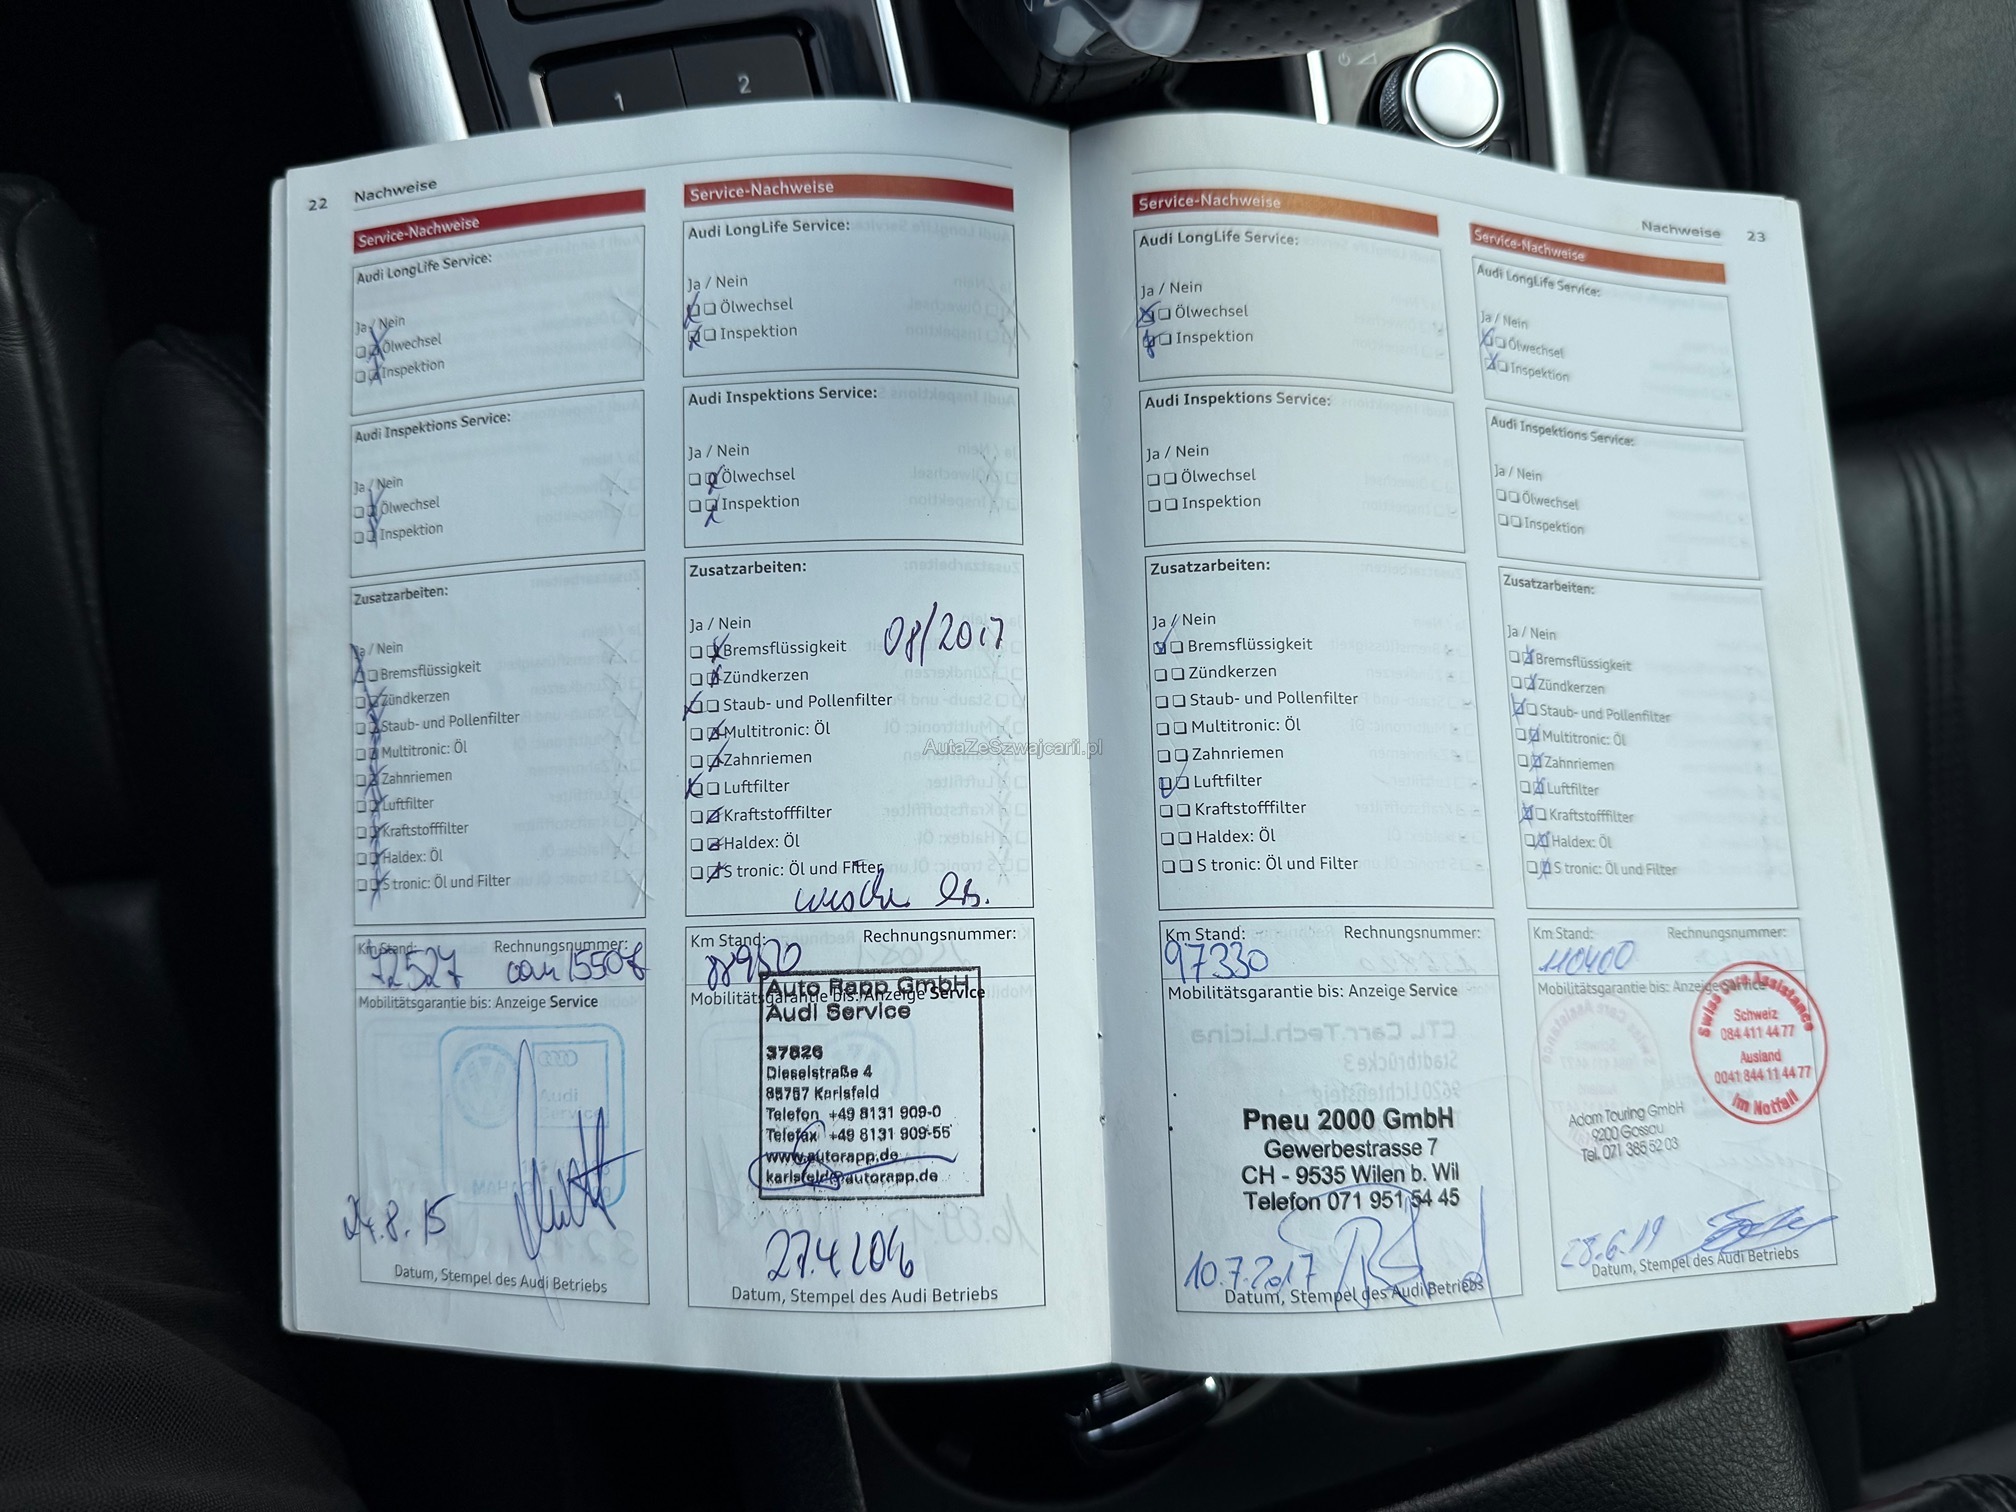 1
2
22 Nachweise
Service-Nachweise
Audi LongLife Service:
Ja / Nein
Ölwechsel
Inspektion
Audi Inspektions Service:
Ja / Nein
Ölwechsel
Inspektion
Zusatzarbeiten:
Ja / Nein
Bremsflüssigkeit
Zündkerzen
Staub- und Pollenfilter
Multitronic: Öl
Zahnriemen
Luftfilter
Kraftstofffilter
Haldex: Öl
S tronic: Öl und Filter
Km Stand: Rechnungsnummer:
72527
Mobilitätsgarantie bis: Anzeige Service
24.8.15
Datum, Stempel des Audi Betriebs
Service-Nachweise
Audi LongLife Service:
Ja / Nein
Ölwechsel
Inspektion
Audi Inspektions Service:
Ja / Nein
Ölwechsel
Inspektion
Zusatzarbeiten:
Ja / Nein
Bremsflüssigkeit 08/2017
Zündkerzen
Staub- und Pollenfilter
Multitronic: Öl
Zahnriemen
Luftfilter
Kraftstofffilter
Haldex: Öl
S tronic: Öl und Filter
Km Stand: Rechnungsnummer:
Mobilitätsgarantie bis: Anzeige Service
Auto Rapp GmbH
Audi Service
37826
Dieselstraße 4
85757 Karlsfeld
Telefon +49 8131 909-0
Telefax +49 8131 909-55
www.autorapp.de
karlsfeld@autorapp.de
27.4.2016
Datum, Stempel des Audi Betriebs
AutaZeSzwajcarii.pl
Nachweise 23
Service-Nachweise
Audi LongLife Service:
Ja / Nein
Ölwechsel
Inspektion
Audi Inspektions Service:
Ja / Nein
Ölwechsel
Inspektion
Zusatzarbeiten:
Ja / Nein
Bremsflüssigkeit
Zündkerzen
Staub- und Pollenfilter
Multitronic: Öl
Zahnriemen
Luftfilter
Kraftstofffilter
Haldex: Öl
S tronic: Öl und Filter
Km Stand: Rechnungsnummer:
97330
Mobilitätsgarantie bis: Anzeige Service
Pneu 2000 GmbH
Gewerbestrasse 7
CH - 9535 Wilen b. Wil
Telefon 071 951 54 45
10.7.2017
Datum, Stempel des Audi Betriebs
Service-Nachweise
Audi LongLife Service:
Ja / Nein
Ölwechsel
Inspektion
Audi Inspektions Service:
Ja / Nein
Ölwechsel
Inspektion
Zusatzarbeiten:
Ja / Nein
Bremsflüssigkeit
Zündkerzen
Staub- und Pollenfilter
Multitronic: Öl
Zahnriemen
Luftfilter
Kraftstofffilter
Haldex: Öl
S tronic: Öl und Filter
Km Stand: Rechnungsnummer:
110400
Mobilitätsgarantie bis: Anzeige Service
Swiss Car Assistance
Schweiz
084 411 44 77
Ausland
0041 844 11 44 77
Im Notfall
Adam Touring GmbH
9200 Gossau
Tel. 071 385 52 03
28.6.19
Datum, Stempel des Audi Betriebs